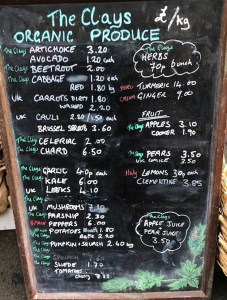 The Clays £/kg
ORGANIC PRODUCE
The Clays ARTICHOKE 3.20
AVOCADO 1.20 each
The Clays BEETROOT 2.00
The Clays CABBAGE 1.20 each
RED 1.80 kg
UK CARROTS DIRTY 1.80
WASHED 2.20
UK CAULI each
BRUSSEL SPROUTS 3.60
The Clays CELERIAC 2.00
The Clays CHARD 6.50
The Clays GARLIC 40p each
The Clays KALE 6.00
UK LEEKS 4.10
UK MUSHROOMS 7.10
The Clays PARSNIP 2.30
SPAIN PEPPERS 6.00
The Clays POTATOES 1.80
2.20
The Clays PUMPKIN + SQUASH 2.40 kg
SWEDE 1.70
TOMATOES
Cherry
The Clays
HERBS
70p bunch
PERU TURMERIC 14.00
CHINA GINGER 9.00
FRUIT
The Clays APPLES 3.10
COOKER 1.90
The Clays PEARS 3.50
UK COMICE 3.50
Italy LEMONS 30p each
CLEMENTINE 3.85
The Clays
APPLE JUICE
PEAR JUICE
3.50